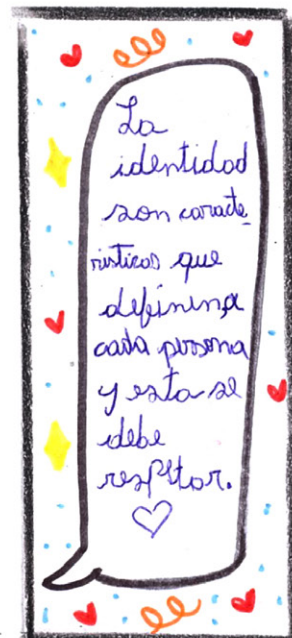 La
identidad
son caracte
rísticas que
definina
cada persona
y esta se
debe
respetar.